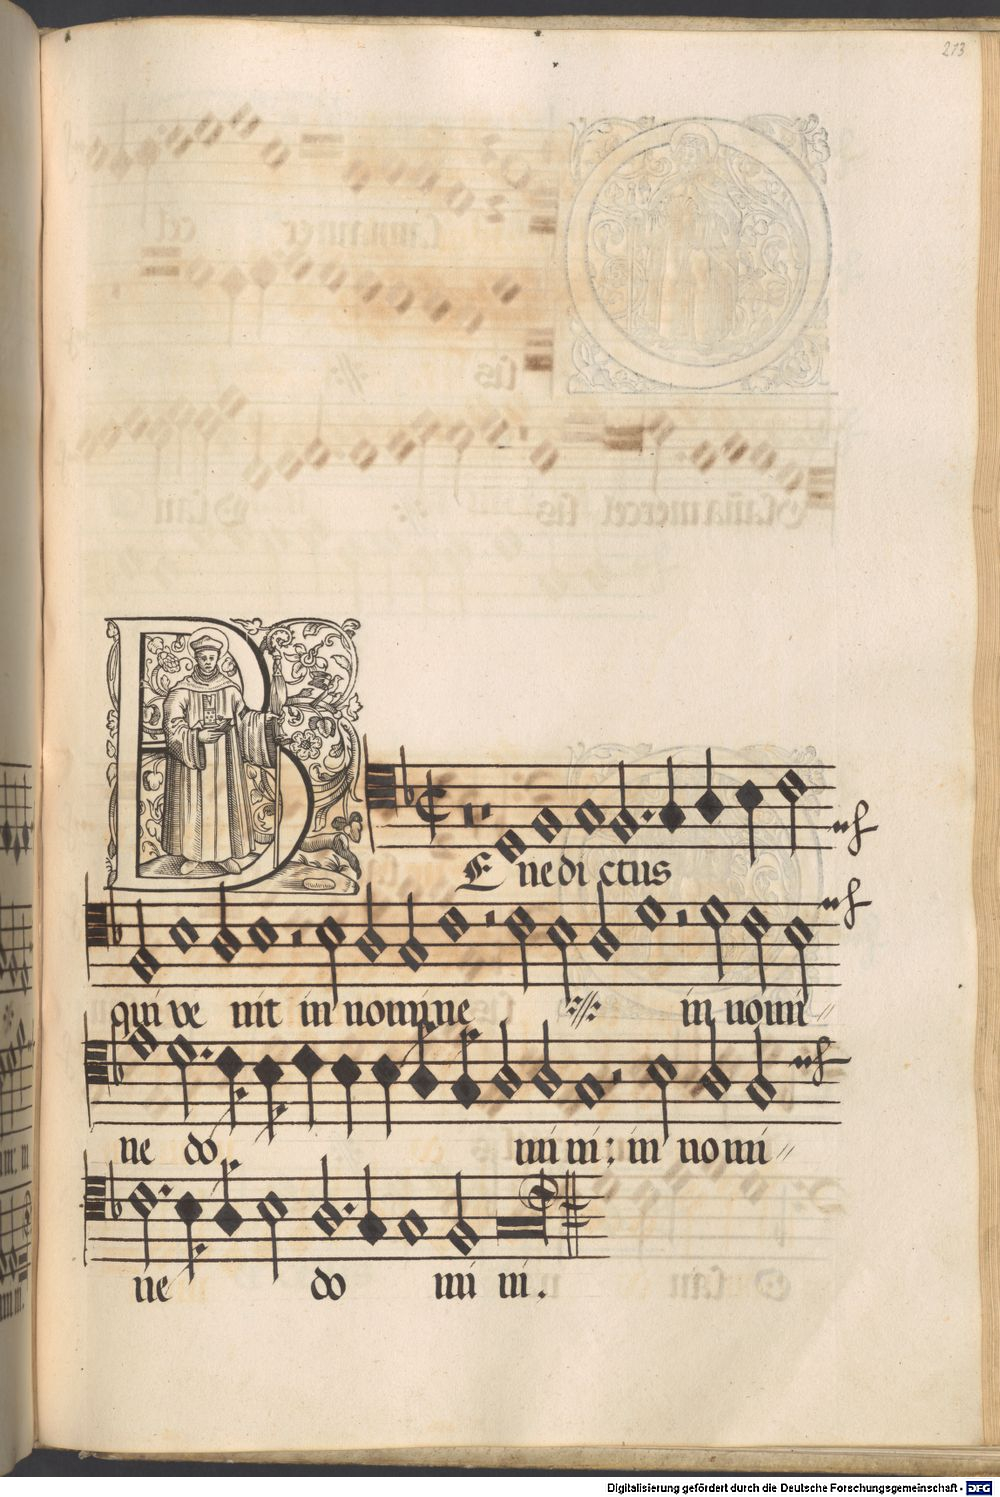 273
BEnedi ctus
qui ve nit in nomine in nomi
ne do mi ni: in nomi
ne do mi ni.
Digitalisierung gefördert durch die Deutsche Forschungsgemeinschaft - DFG